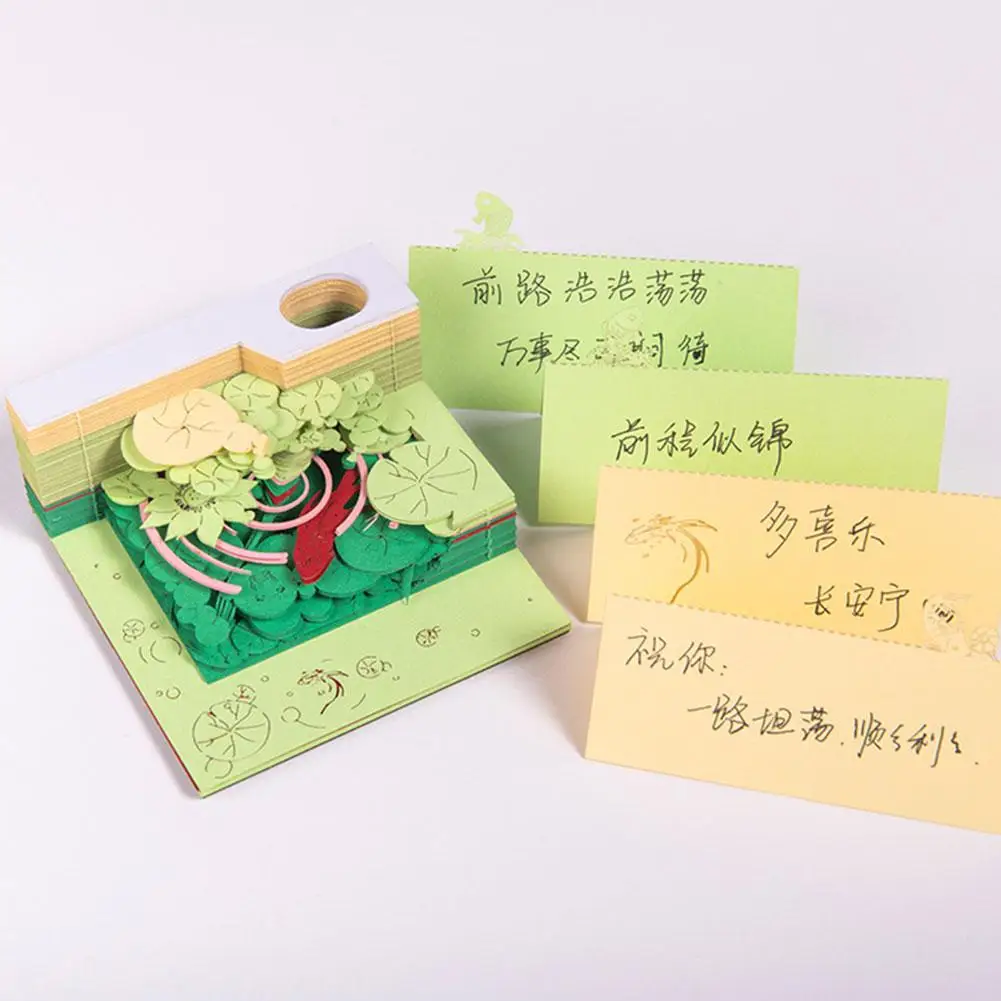 前路浩浩荡荡
万事尽
前程似锦
多喜乐
长安宁
祝你:
一路坦荡.顺顺利利.